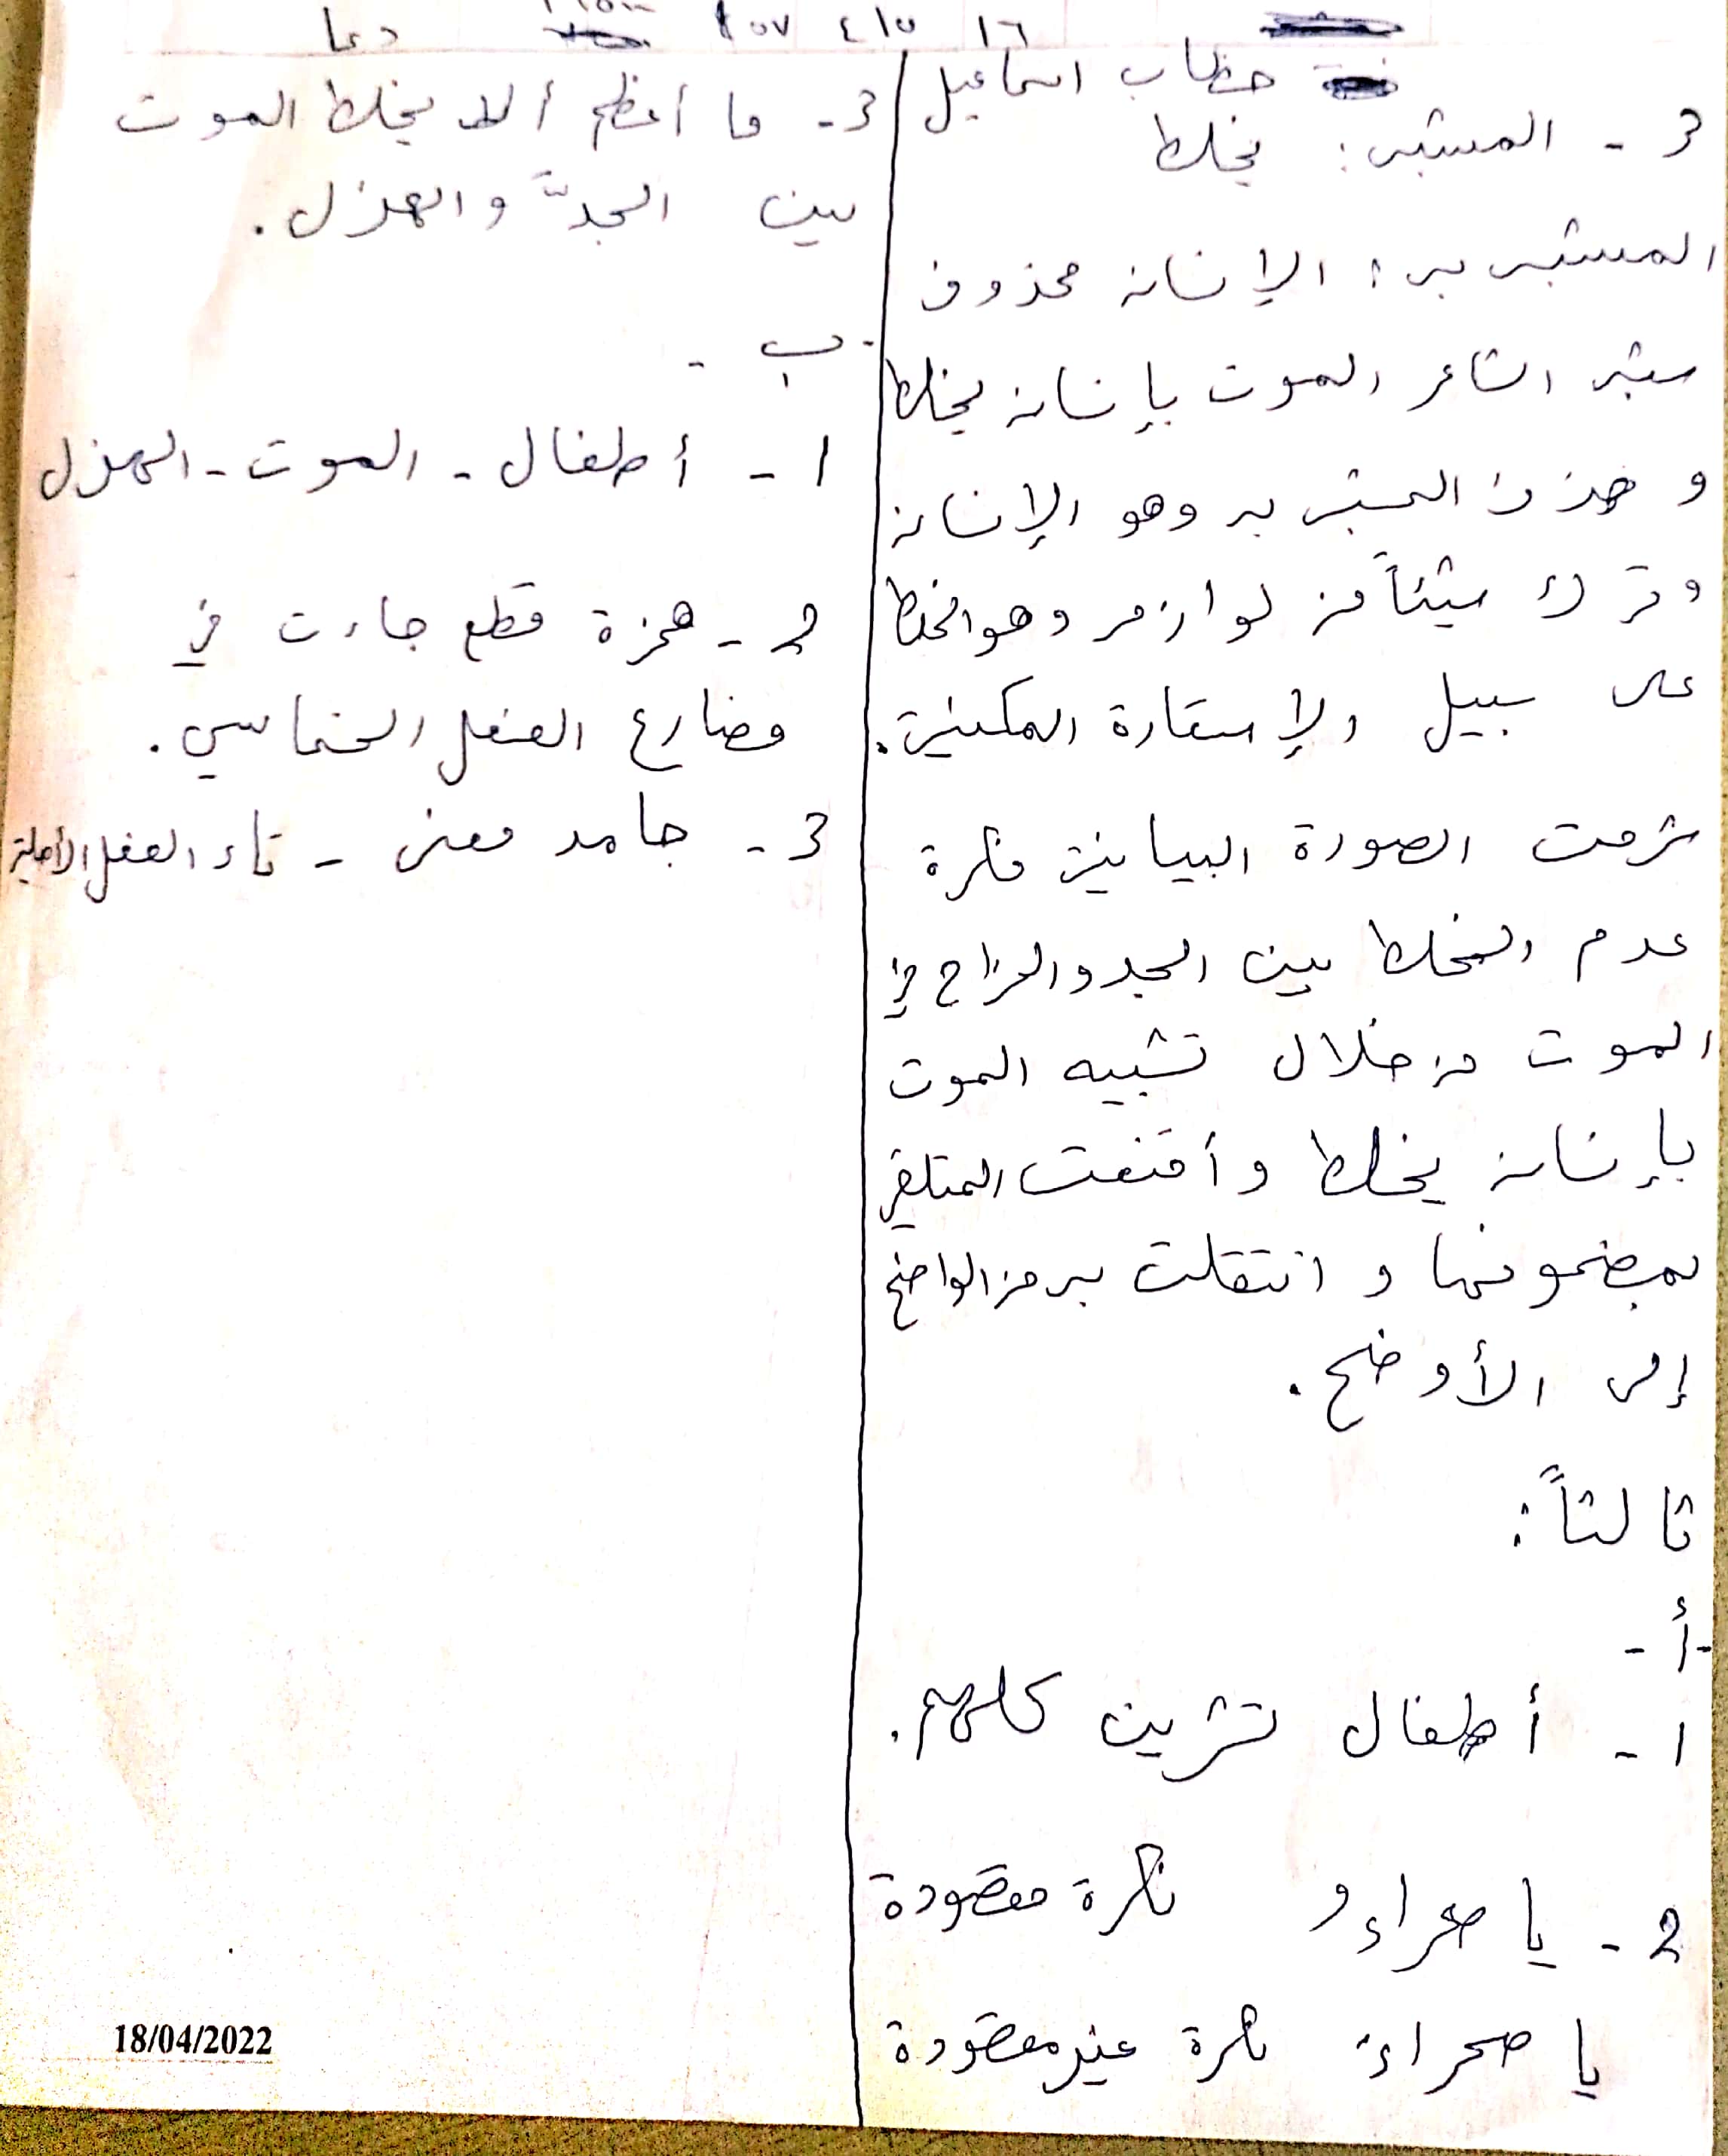 ١٦ ٤١٥ ٥٧ دعا
خطاب اسماعيل
3 - المشبه: يخلط
المشبه به: الإنسان محذوف
شبه الشاعر الموت بإنسان يخلط
و حذف المشبه به وهو الإنسان
وترك شيئاً من لوازمه وهو الخلط
على سبيل الإستعارة المكنية.
شرحت الصورة البيانية فكرة
عدم الخلط بين الجد والمزاح في
الموت من خلال تشبيه الموت
بإنسان يخلط وأقنعت المتلقي
بمضمونها و انتقلت به من الواضح
إلى الأوضح.
ثالثاً:
-أ-
1 - أطفال تشرين كلهم.
2 - يا صحراءُ نكرة مقصودة
يا صحراءً نكرة غير مقصودة
3 - ما أعظم ألا يخلط الموت
بين الجدّ والهزل.
- ب -
1 - أطفال - الموت - الهزل
2 - همزة قطع جاءت في
مضارع الفعل الخماسي.
3 - جامد معنى - تاء الفعل الأصلية
18/04/2022